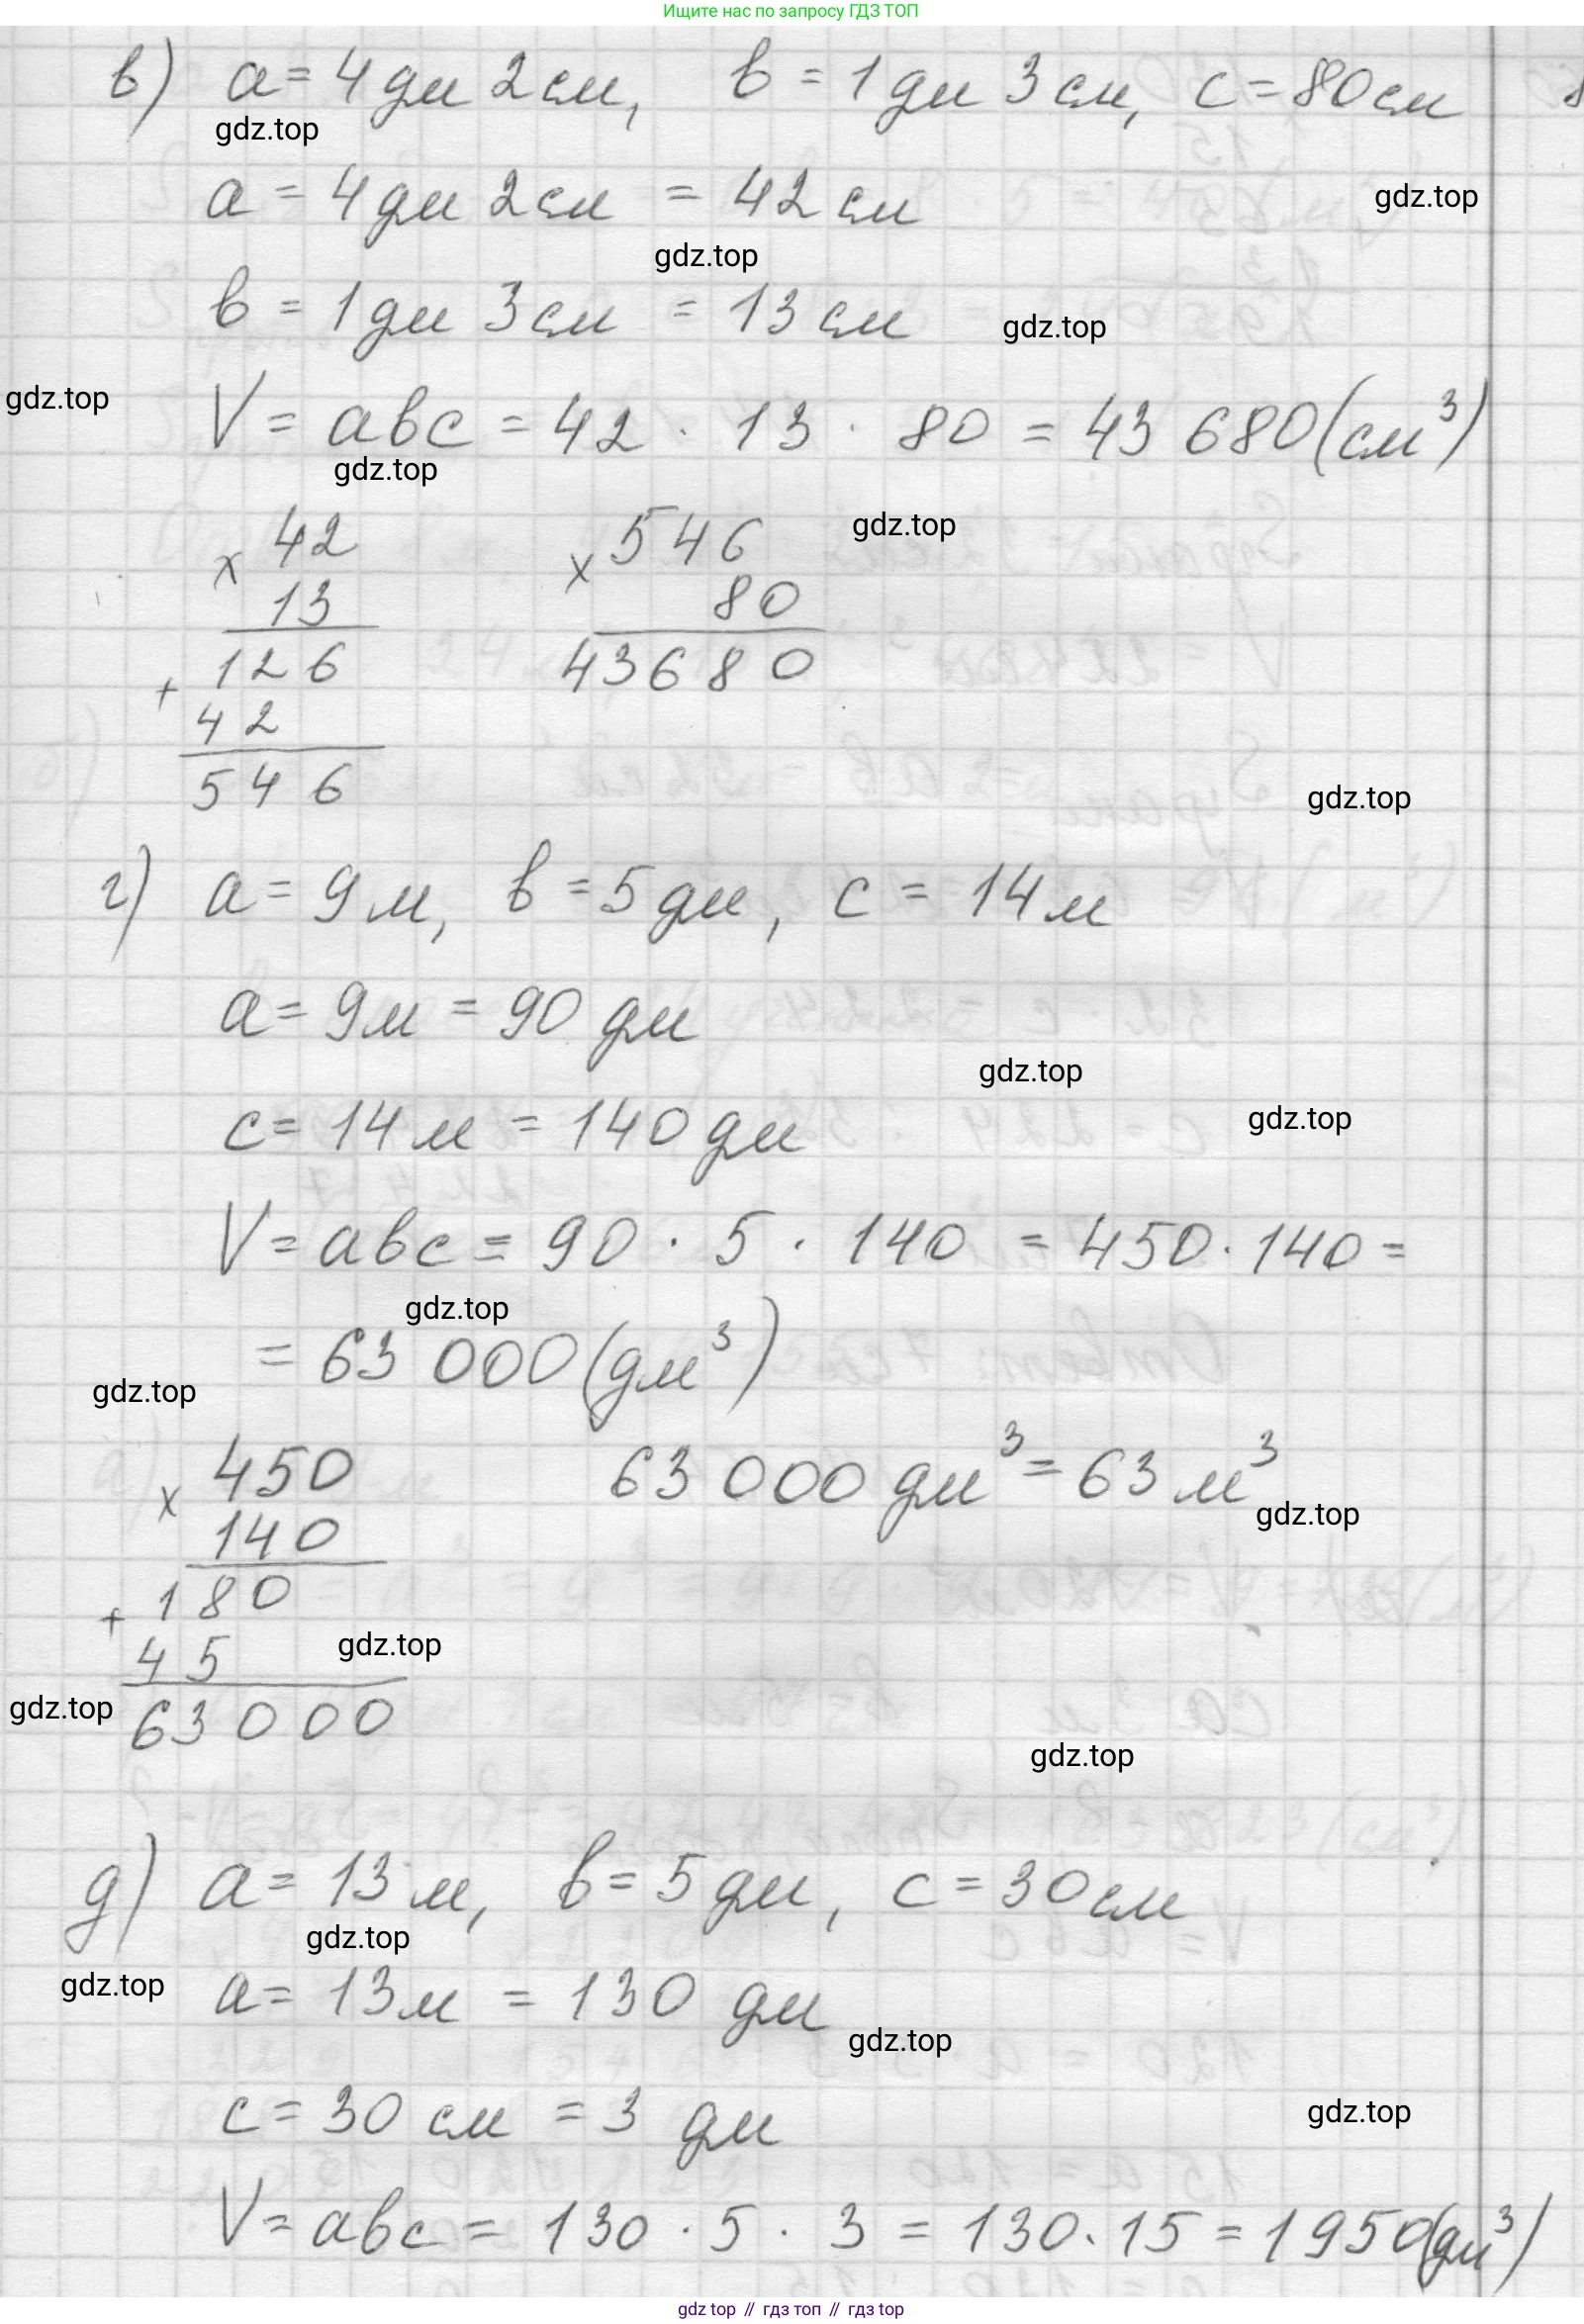 Ищите нас по запросу ГДЗ ТОП
в) a = 4 дм 2 см, b = 1 дм 3 см, c = 80 см
gdz.top
a = 4 дм 2 см = 42 см
gdz.top
gdz.top
b = 1 дм 3 см = 13 см
gdz.top
gdz.top
V = abc = 42 · 13 · 80 = 43 680 (см³)
gdz.top
gdz.top
x 42 x 546
13 80
+ 126 43680
42
546
gdz.top
г) a = 9 м, b = 5 дм, c = 14 м
a = 9 м = 90 дм
gdz.top
c = 14 м = 140 дм
gdz.top
V = abc = 90 · 5 · 140 = 450 · 140 =
gdz.top
= 63 000 (дм³)
gdz.top
x 450 63 000 дм³ = 63 м³
gdz.top
140
+ 180
45
gdz.top
gdz.top
63000
gdz.top
д) a = 13 м, b = 5 дм, c = 30 см
gdz.top
gdz.top
a = 13 м = 130 дм
gdz.top
c = 30 см = 3 дм
gdz.top
V = abc = 130 · 5 · 3 = 130 · 15 = 1950 (дм³)
gdz top // гдз топ // gdz top